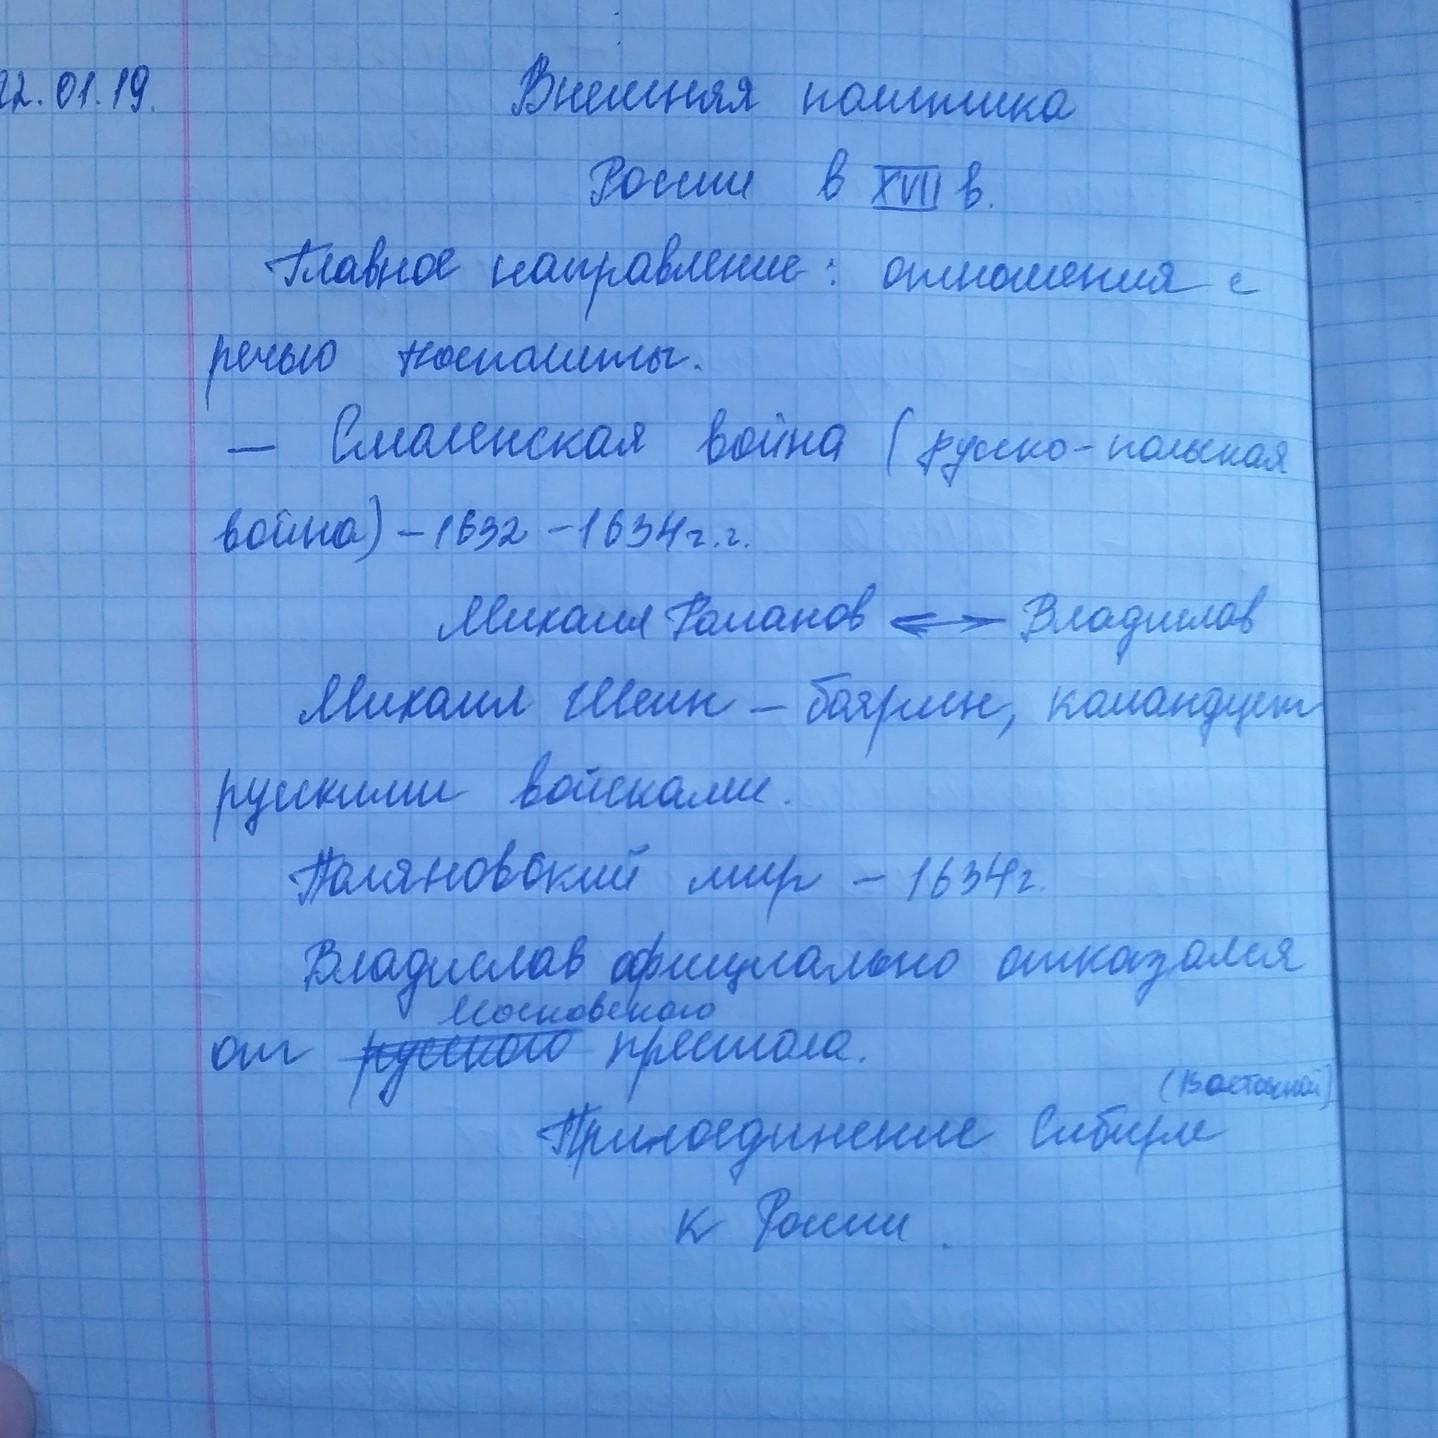 22.01.19. Внешняя политика
России в XVII в.
Главное направление: отношения с
речью посполиты.
— Смоленская война (русско-польская
война) – 1632 – 1634 г.г.
Михаил Романов ⟷ Владислав
Михаил Шеин – боярин, командует
русскими войсками.
Поляновский мир – 1634 г.
Владислав официально отказался
Московского
от русского престола.
(Восточной)
Присоединение Сибири
к России.